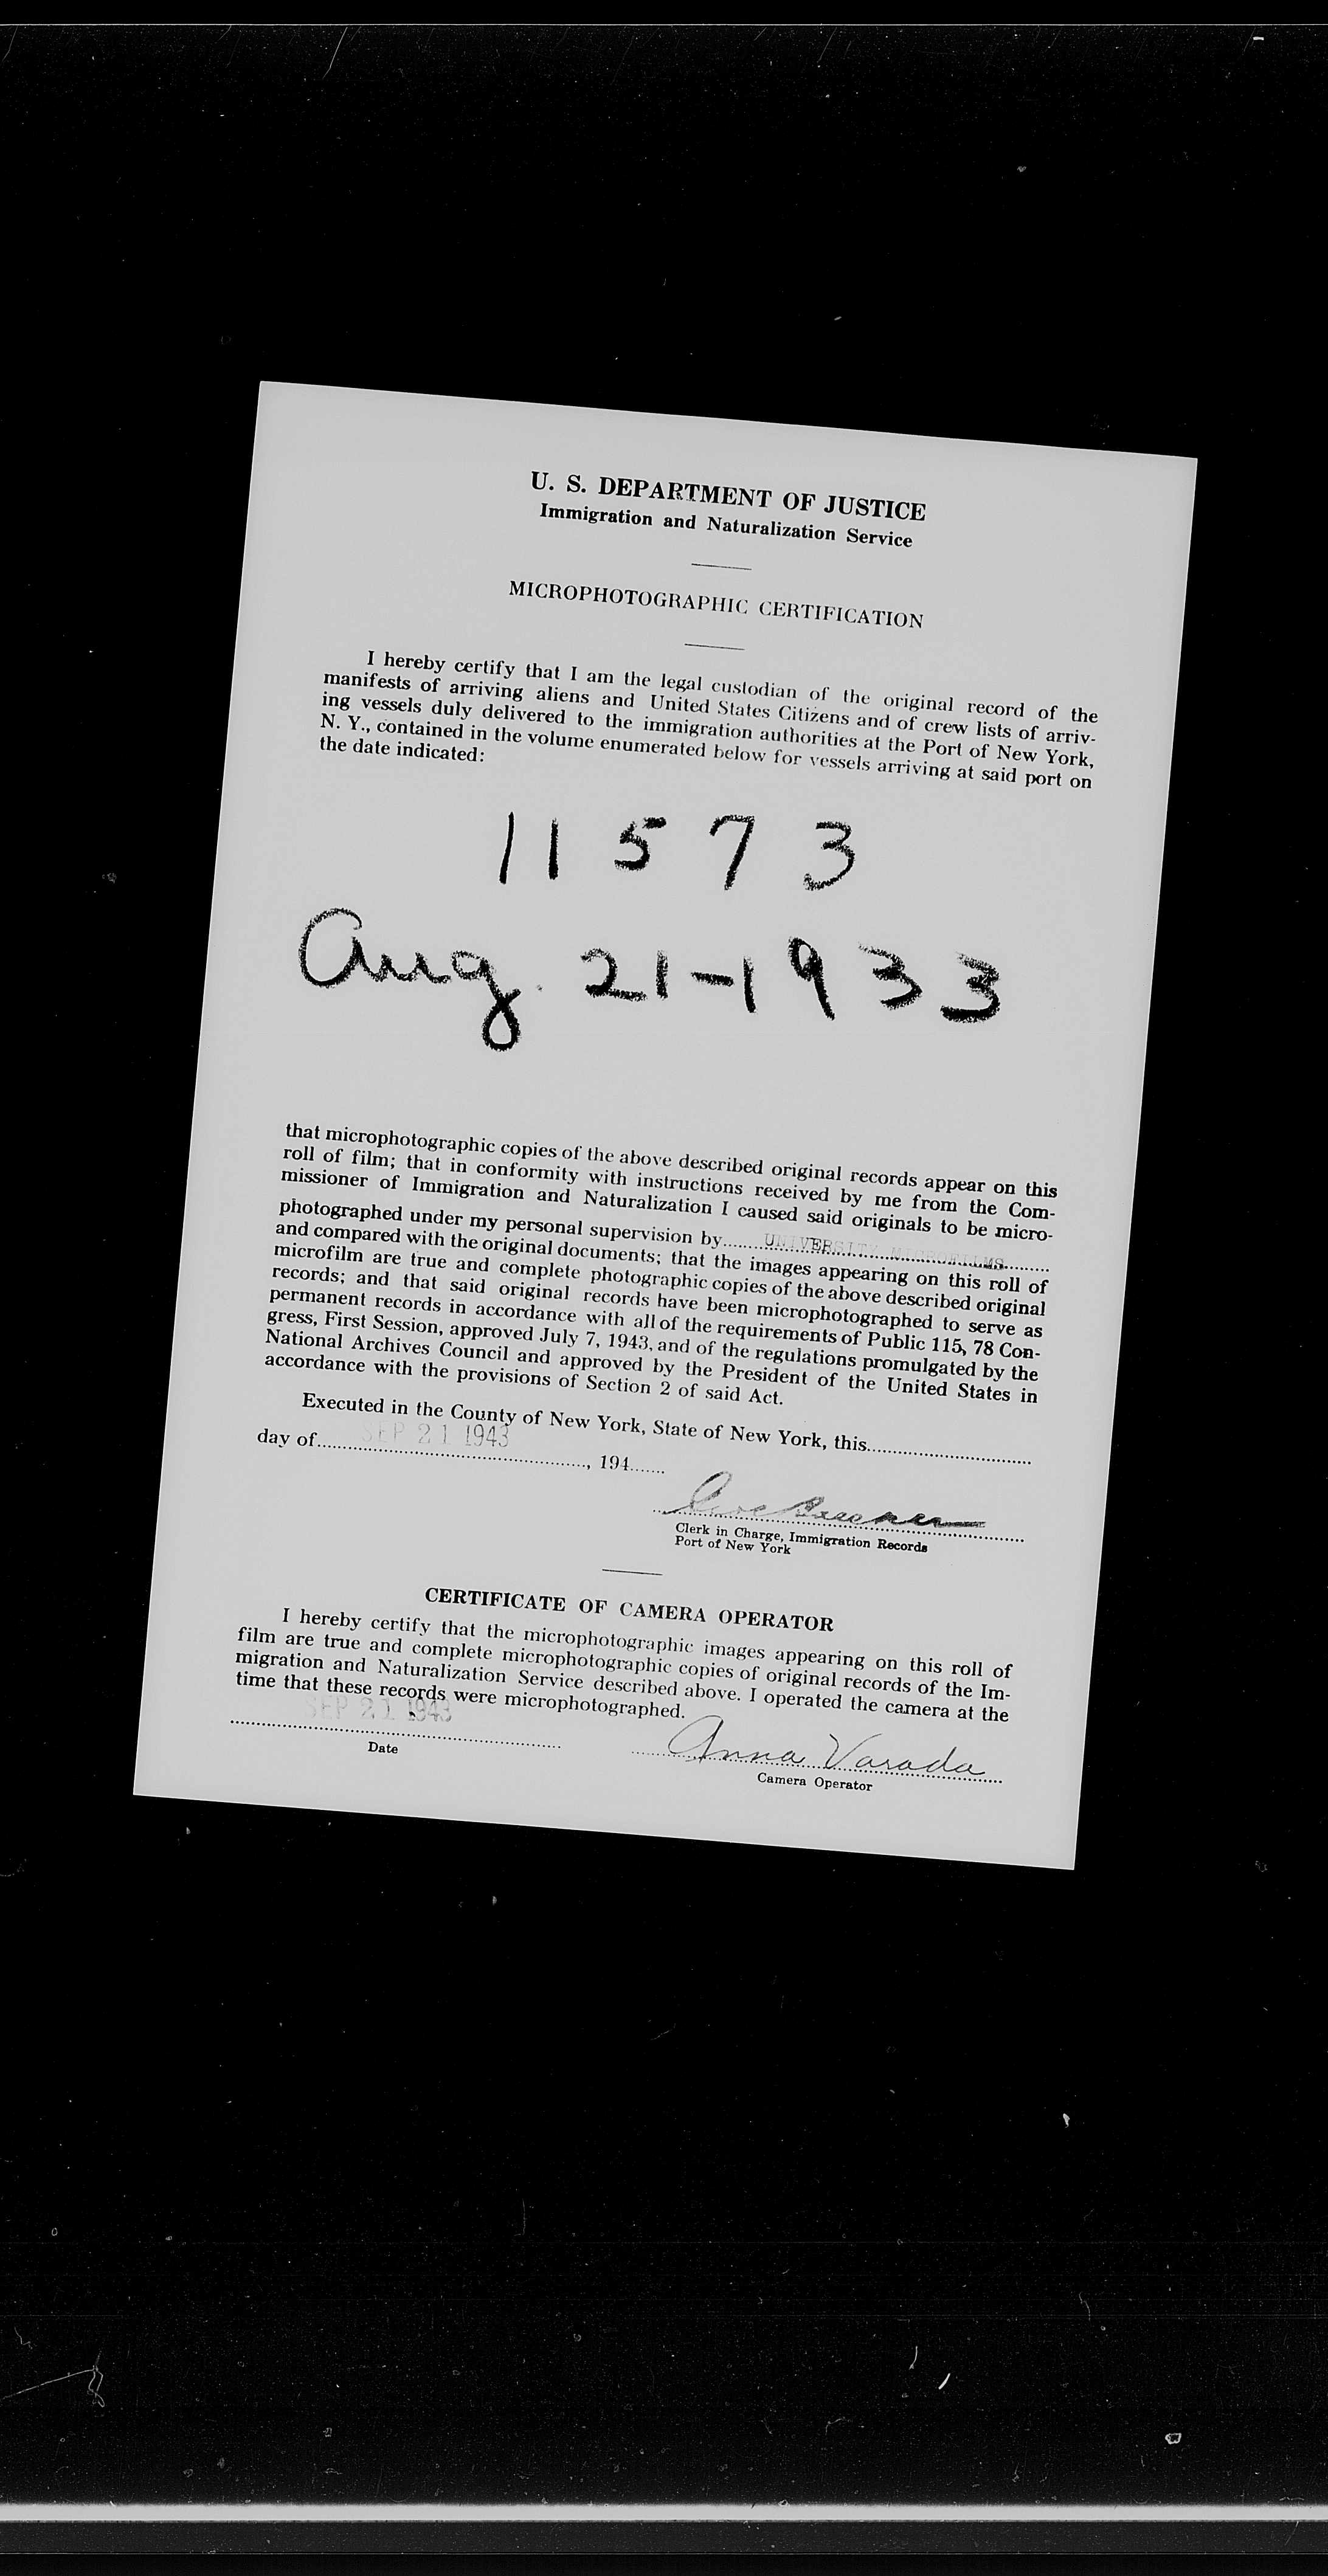 U. S. DEPARTMENT OF JUSTICE
Immigration and Naturalization Service
MICROPHOTOGRAPHIC CERTIFICATION
I hereby certify that I am the legal custodian of the original record of the
manifests of arriving aliens and United States Citizens and of crew lists of arriv-
ing vessels duly delivered to the immigration authorities at the Port of New York,
N. Y., contained in the volume enumerated below for vessels arriving at said port on
the date indicated:
11573
Aug. 21-1933
that microphotographic copies of the above described original records appear on this
roll of film; that in conformity with instructions received by me from the Com-
missioner of Immigration and Naturalization I caused said originals to be micro-
photographed under my personal supervision by UNIVERSITY MICROFILMS
and compared with the original documents; that the images appearing on this roll of
microfilm are true and complete photographic copies of the above described original
records; and that said original records have been microphotographed to serve as
permanent records in accordance with all of the requirements of Public 115, 78 Con-
gress, First Session, approved July 7, 1943, and of the regulations promulgated by the
National Archives Council and approved by the President of the United States in
accordance with the provisions of Section 2 of said Act.
Executed in the County of New York, State of New York, this
day of SEP 21 1943, 194
Clerk in Charge, Immigration Records
Port of New York
CERTIFICATE OF CAMERA OPERATOR
I hereby certify that the microphotographic images appearing on this roll of
film are true and complete microphotographic copies of original records of the Im-
migration and Naturalization Service described above. I operated the camera at the
time that these records were microphotographed.
SEP 21 1943
Anna Varada
Date
Camera Operator